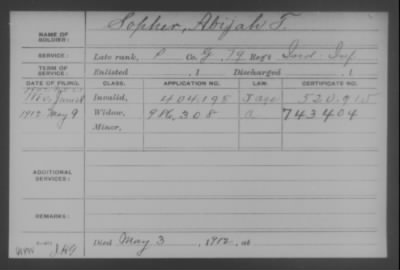 NAME OF SOLDIER: Sopher, Abijah T.
SERVICE: Late rank, P Co. G, 79 Reg't Ind. Inf.
TERM OF SERVICE: Enlisted , 1 Discharged , 1
DATE OF FILING. CLASS. APPLICATION NO. LAW. CERTIFICATE NO.
Invalid, 404,195
1912 May 9 Widow, 986,308 a 743404
Minor,
ADDITIONAL SERVICES:
REMARKS:
Died May 3, 1912, at